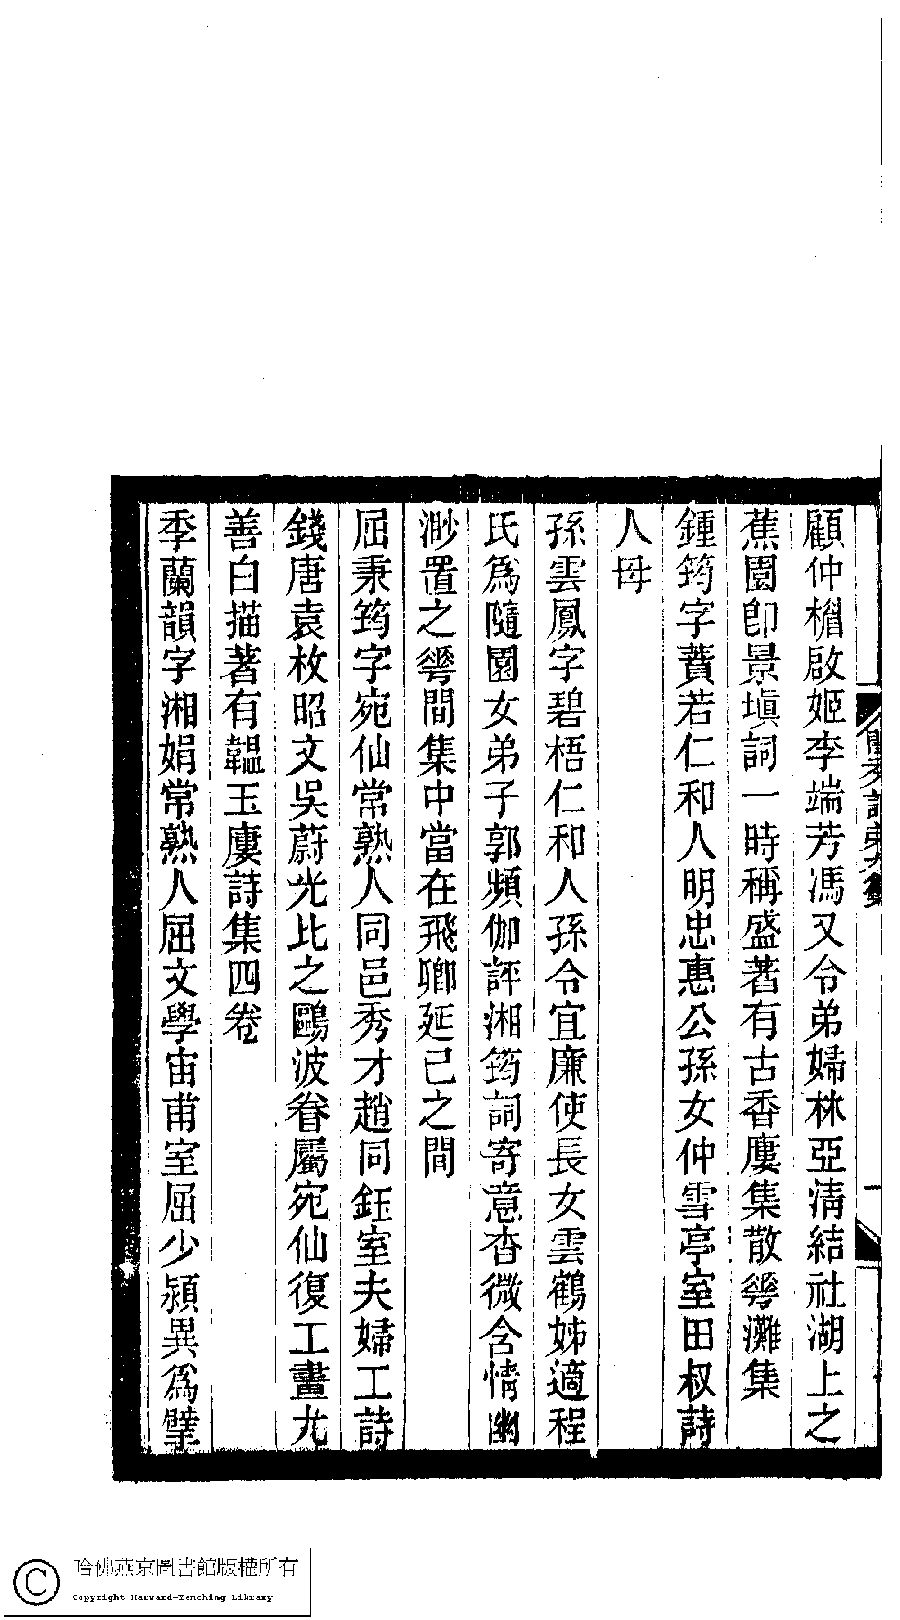 顧仲楷啟姬李端芳馮又令弟婦林亞清結社湖上之
蕉園卽景塡詞一時稱盛著有古香廔集散䔢灘集
鍾筠字蕡若仁和人明忠惠公孫女仲雪亭室田叔詩
人母
孫雲鳳字碧梧仁和人孫令宜廉使長女雲鶴姊適程
氏爲隨園女弟子郭頻伽評湘筠詞寄意杳微含情幽
渺置之䔢間集中當在飛卿延已之間
屈秉筠字宛仙常熟人同邑秀才趙同鈺室夫婦工詩
錢唐袁枚昭文吳蔚光比之鷗波眷屬宛仙復工畫尤
善白描著有韞玉廔詩集四卷
季蘭韻字湘娟常熟人屈文學宙甫室屈少潁異爲擘
哈佛燕京圖書館版權所有
Copyright Harvard-Yenching Library